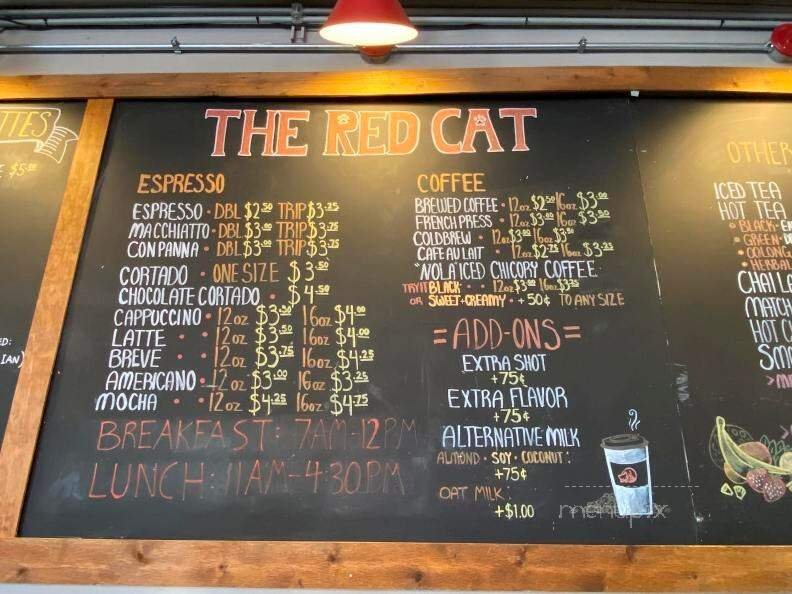 TTES
$5.00
IAN)
THE RED CAT
ESPRESSO
ESPRESSO • DBL $2.50 TRIP $3.25
MACCHIATTO • DBL $3.00 TRIP $3.75
CON PANNA • DBL $3.00 TRIP $3.75
CORTADO • ONE SIZE $3.50
CHOCOLATE CORTADO • $4.50
CAPPUCCINO • 12oz $3.50 16oz $4.00
LATTE • • 12oz $3.50 16oz $4.00
BREVE • • 12oz $3.75 16oz $4.25
AMERICANO • 12oz $3.00 16oz $3.25
MOCHA • • 12oz $4.25 16oz $4.75
BREAKFAST: 7AM-12PM
LUNCH: 11AM-4:30PM
COFFEE
BREWED COFFEE • 12oz $2.50 16oz $3.00
FRENCH PRESS • 12oz $3.00 16oz $3.50
COLDBREW • 12oz $3.00 16oz $3.50
CAFE AU LAIT • 12oz $2.75 16oz $3.25
"NOLA" ICED CHICORY COFFEE:
TRY IT BLACK • • 12oz $3.00 16oz $3.25
OR SWEET+CREAMY • +50¢ TO ANY SIZE
=ADD-ONS=
EXTRA SHOT
+75¢
EXTRA FLAVOR
+75¢
ALTERNATIVE MILK
ALMOND • SOY • COCONUT:
+75¢
OAT MILK:
+$1.00
menupix
OTHER
ICED TEA
HOT TEA
• BLACK-
• GREEN-
• OOLONG
• HERBAL
CHAI
MATCH
HOT C
SM